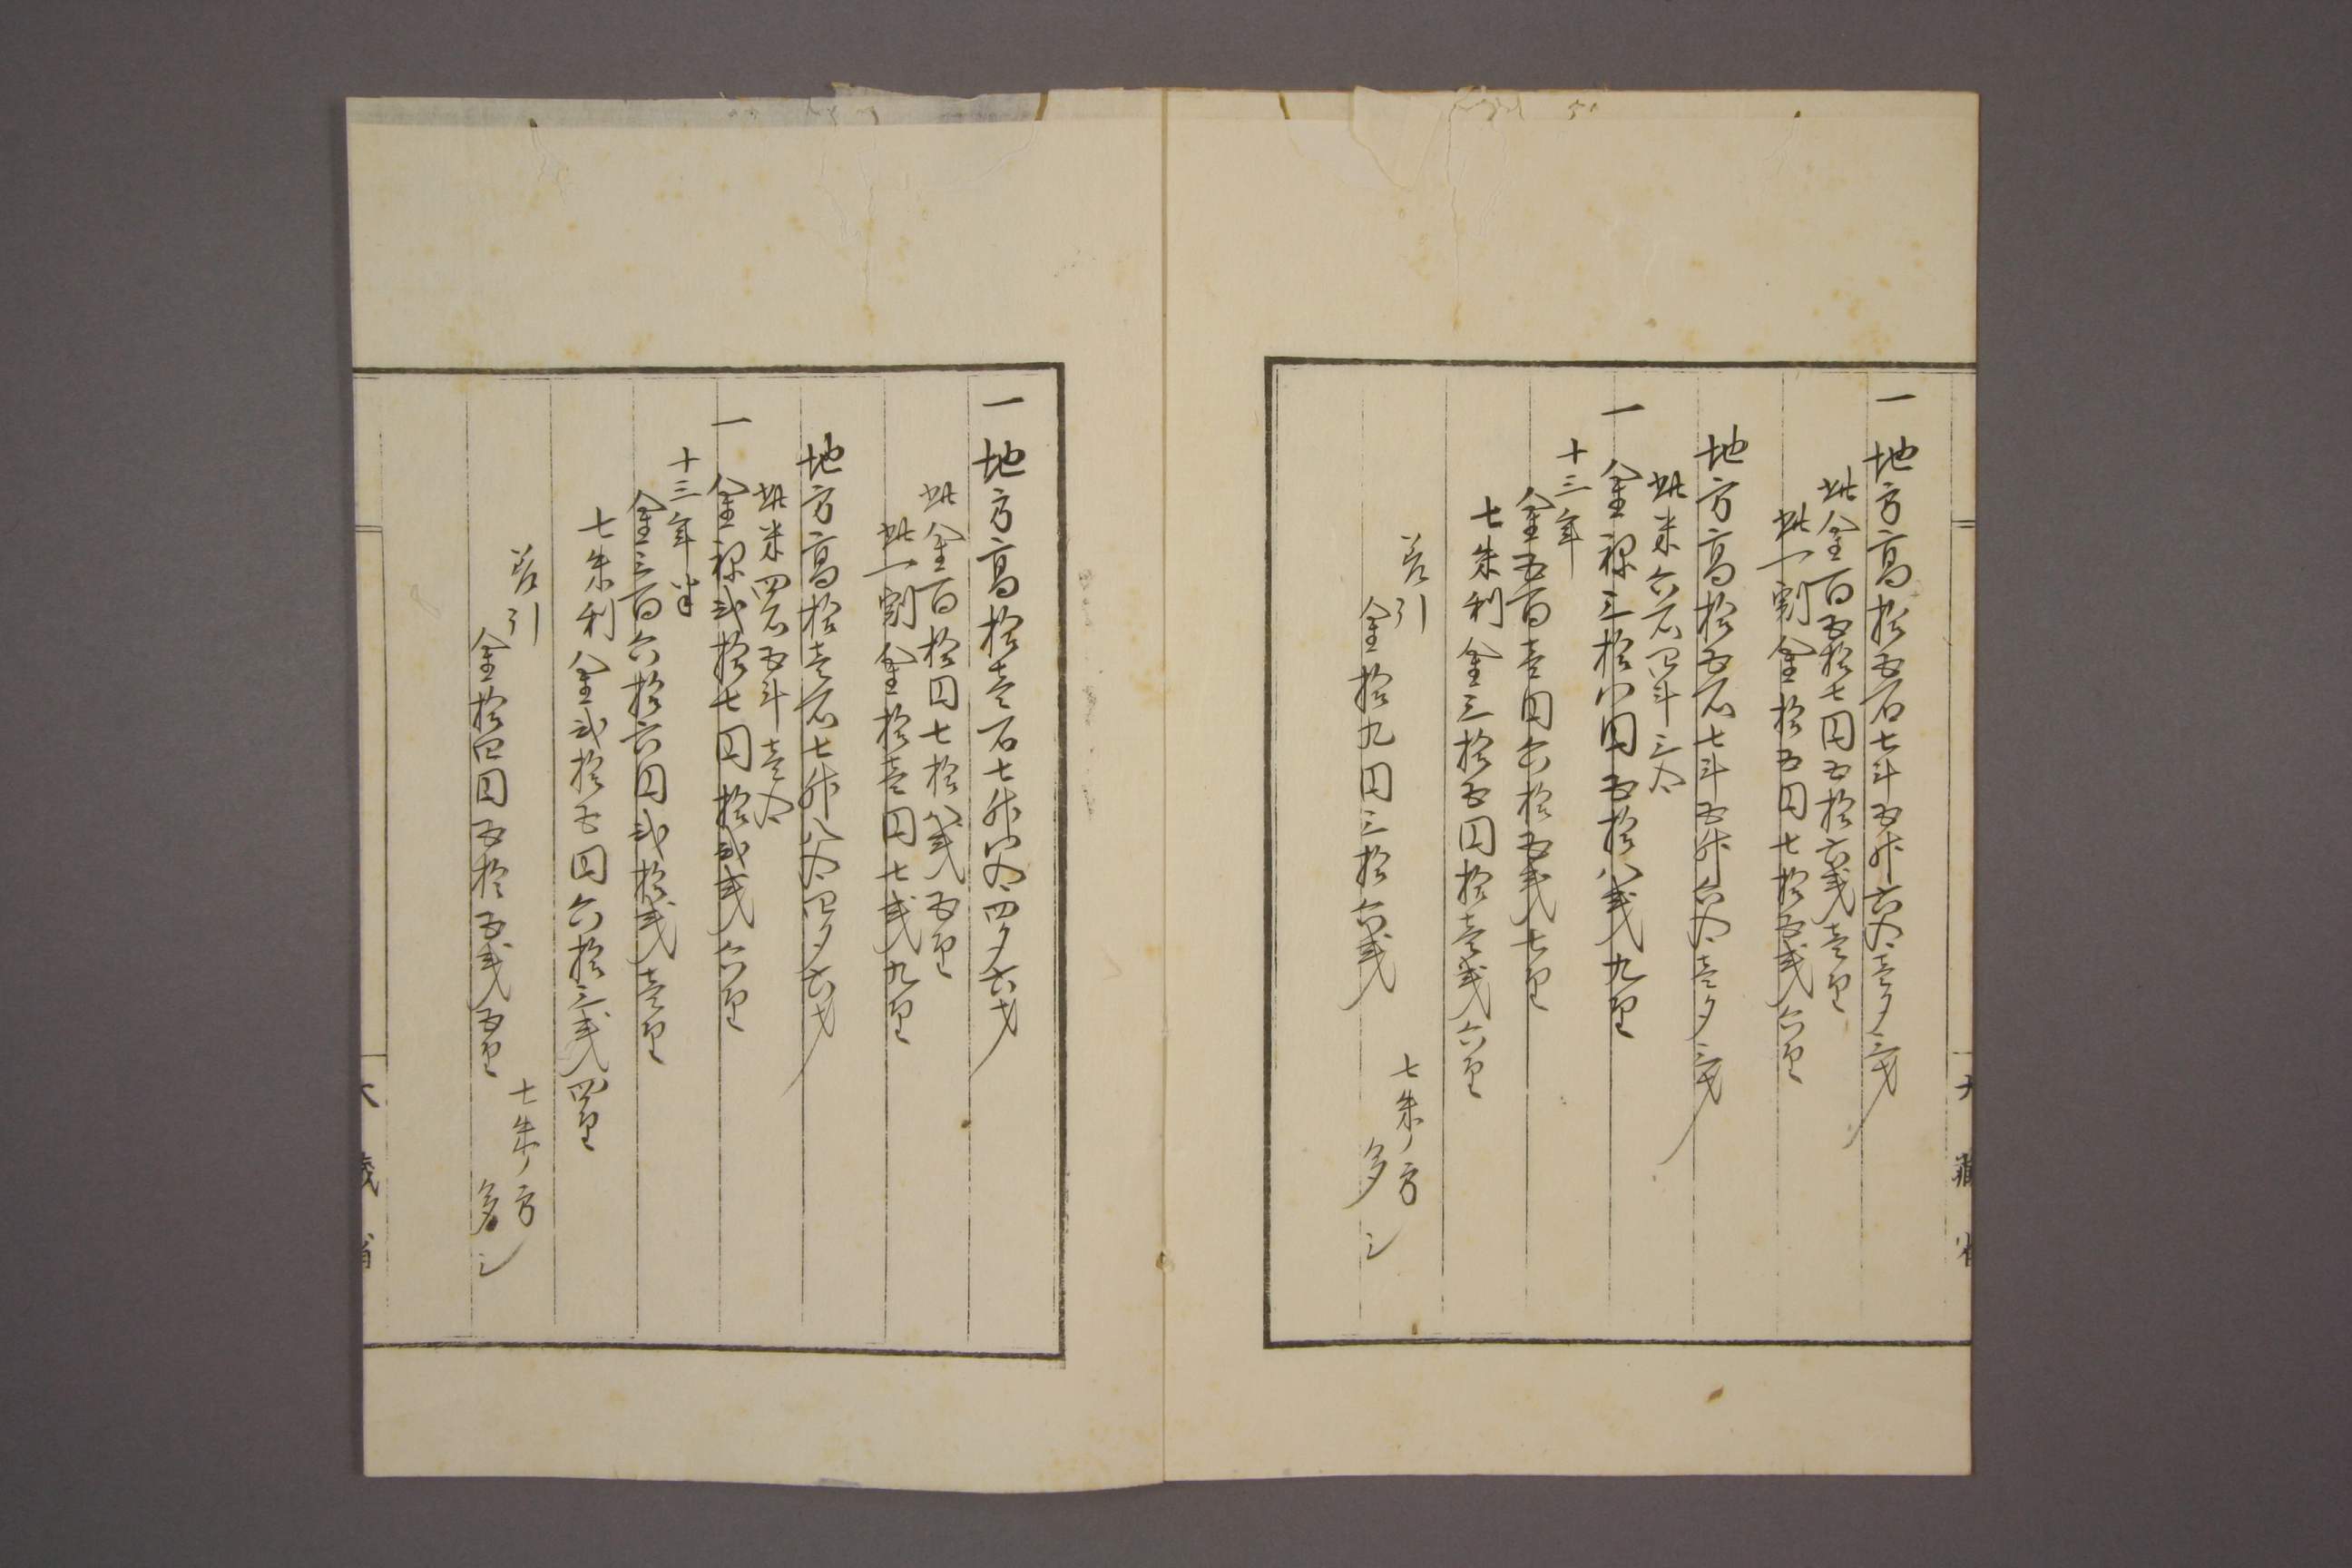 一 地方高拾五石七斗五升六合壱夕三才
此金百五拾七円五拾六銭壱厘
此一割金拾五円七拾五銭六厘
地方高拾五石七斗五升六合壱夕三才
此米六石四斗三合
一 金禄三拾八円五拾八銭九厘
十三年
金五百壱円六拾五銭七厘
七朱利 金三拾五円拾壱銭六厘
差引
金拾九円三拾六銭
七朱ノ方
多シ
一 地方高拾壱石七升八合四夕六才
此金百拾円七拾八銭五厘
此一割金拾壱円七銭九厘
地方高拾壱石七升八合四夕六才
此米四石五斗壱合
一 金禄弐拾七円拾弐銭六厘
十三年半
金三百六拾六円弐拾銭壱厘
七朱利 金弐拾五円六拾三銭四厘
差引
金拾四円五拾五銭五厘
七朱ノ方
多シ
大蔵省